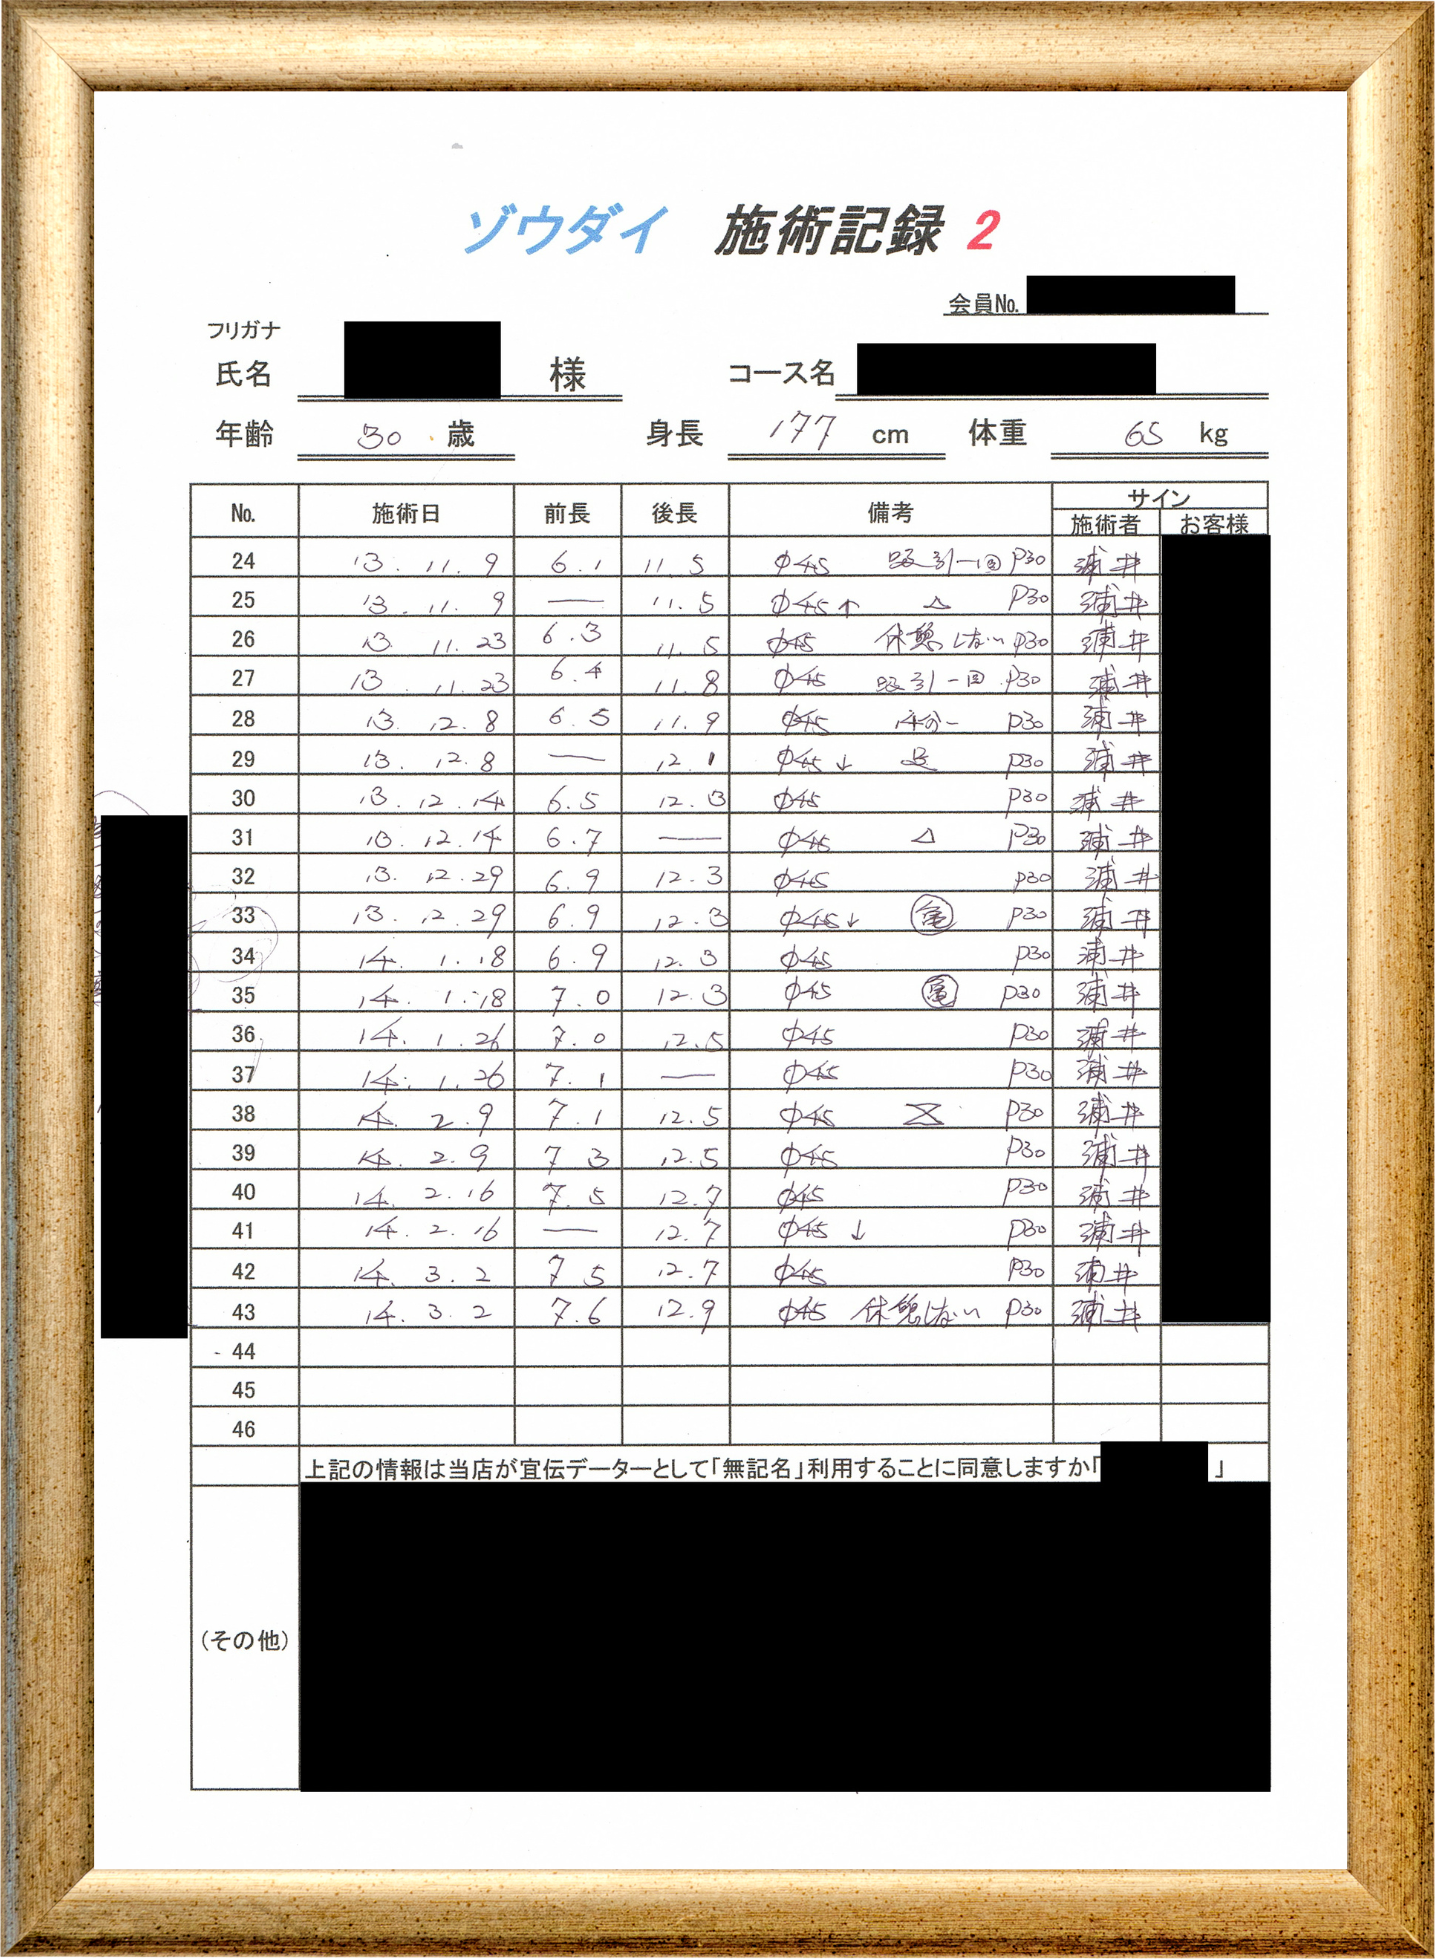 ゾウダイ 施術記録 2
会員No.
フリガナ
氏名 様 コース名
年齢 30 歳 身長 177 cm 体重 65 kg
No. 施術日 前長 後長 備考 サイン
施術者 お客様
24 13. 11. 9 6.1 11.5 φ45 吸引一回 P30 浦井
25 13. 11. 9 — 11.5 φ45↑ △ P30 浦井
26 13. 11. 23 6.3 11.5 φ45 休憩しない P30 浦井
27 13. 11. 23 6.4 11.8 φ45 吸引一回 P30 浦井
28 13. 12. 8 6.5 11.9 φ45 P30 浦井
29 13. 12. 8 — 12.1 φ45↓ P30 浦井
30 13. 12. 14 6.5 12.3 φ45 P30 浦井
31 13. 12. 14 6.7 — φ45 △ P30 浦井
32 13. 12. 29 6.9 12.3 φ45 P30 浦井
33 13. 12. 29 6.9 12.3 φ45↓ 亀 P30 浦井
34 14. 1. 18 6.9 12.3 φ45 P30 浦井
35 14. 1. 18 7.0 12.3 φ45 亀 P30 浦井
36 14. 1. 26 7.0 12.5 φ45 P30 浦井
37 14. 1. 26 7.1 — φ45 P30 浦井
38 14. 2. 9 7.1 12.5 φ45 P30 浦井
39 14. 2. 9 7.3 12.5 φ45 P30 浦井
40 14. 2. 16 7.5 12.7 φ45 P30 浦井
41 14. 2. 16 — 12.7 φ45↓ P30 浦井
42 14. 3. 2 7.5 12.7 φ45 P30 浦井
43 14. 3. 2 7.6 12.9 φ45 休憩しない P30 浦井
44
45
46
上記の情報は当店が宣伝データーとして「無記名」利用することに同意しますか「 」
(その他)